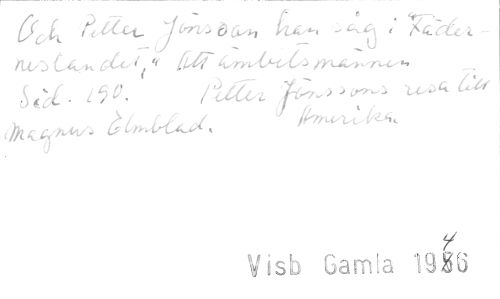 Och Petter Jönsson han såg i "Fäder-
neslandet," Att ämbetsmännen
Sid. 190. Petter Jönssons resa till
Magnus Elmblad. Amerika.
Visb Gamla 1946